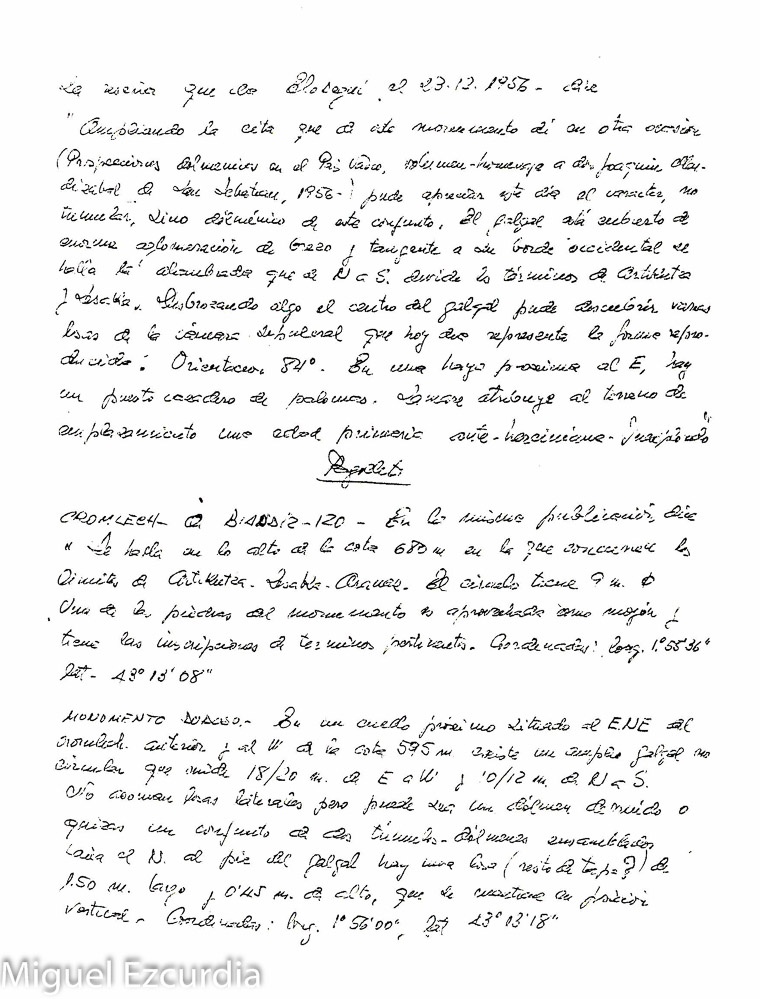 La reseña que da Elosegui, el 23-12-1956 - dice
"Ampliando la cita que de este monumento dí en otra ocasión
(Prospecciones dolménicas en el País Vasco, volumen-homenaje a don Joaquín Men-
dizabal de San Sebastian, 1956-) pude apreciar este día el caracter, no
tumular, sino dolménico de este conjunto. El galgal está cubierto de
enorme aglomeración de brezo y tangente a su borde occidental se
halla la alambrada que de N a S. divide los términos de Artikutza
y Lesaka. Desbrozando algo el centro del galgal pude descubrir varias
losas de la cámara sepulcral que hoy dia representa la forma repro-
ducida: Orientacion 84°. En una haya proxima al E, hay
un puesto cazadero de palomas. Lamare atribuye al terreno de
emplazamiento una edad primaria ante-herciniana-
CROMLECH - de BIANDIZ-120 - En la misma publicación, dice
" Se halla en lo alto de la cota 680 m en la que concurren los
limites de Artikutza - Lesaka - Aranaz. El circulo tiene 9 m. ϕ
Una de las piedras del monumento es aprovechada como mojón y
tiene las inscripciones de terminos pertinentes. Coordenadas: Long. 1°55'36"
Lat - 43°13'08"
MONUMENTO DUDOSO.- En un cuello próximo situado al ENE del
cromlech anterior y al W de la cota 595 m existe un amplio galgal no
circular que mide 18/20 m. de E a W y 10/12 m. de N a S.
No asoman losas laterales pero puede ser un dólmen derruido o
quizas un conjunto de dos túmulos-dólmenes ensamblados
hacia el N. al pie del galgal hay una losa (resto de tapa?) de
1.50 m. largo y 0'45 m. de alto, que se mantiene en posición
vertical - Coordenadas: Long. 1°56'00", Lat 43°13'18"
Miguel Ezcurdia